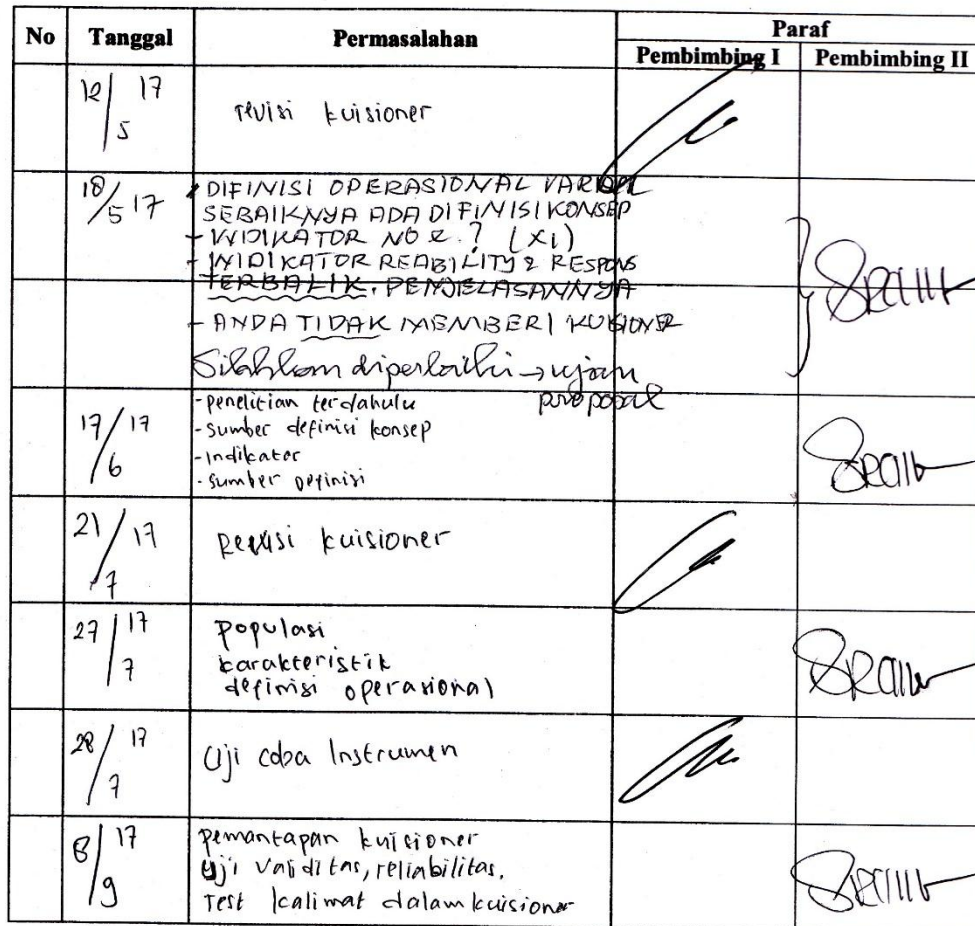 No Tanggal Permasalahan Paraf
Pembimbing I Pembimbing II
12/5 17 revisi kuisioner
18/5 17 - DIFINISI OPERASIONAL VARIABEL
SEBAIKNYA ADA DIFINISI KONSEP
- INDIKATOR NO 2. ? (X1)
- INIDIKATOR REABILITY & RESPONS
TERBALIK. PENJELASANNYA
- ANDA TIDAK MEMBERI KUISIONER
Silahkan diperbaiki → ujian
proposal
17/6 17 - penelitian terdahulu
- sumber definisi konsep
- indikator
- sumber definisi
21/7 17 Revisi kuisioner
27/7 17 populasi
karakteristik
definisi operasional
28/7 17 Uji coba Instrumen
8/9 17 pemantapan kuisioner
uji validitas, reliabilitas,
Test kalimat dalam kuisioner